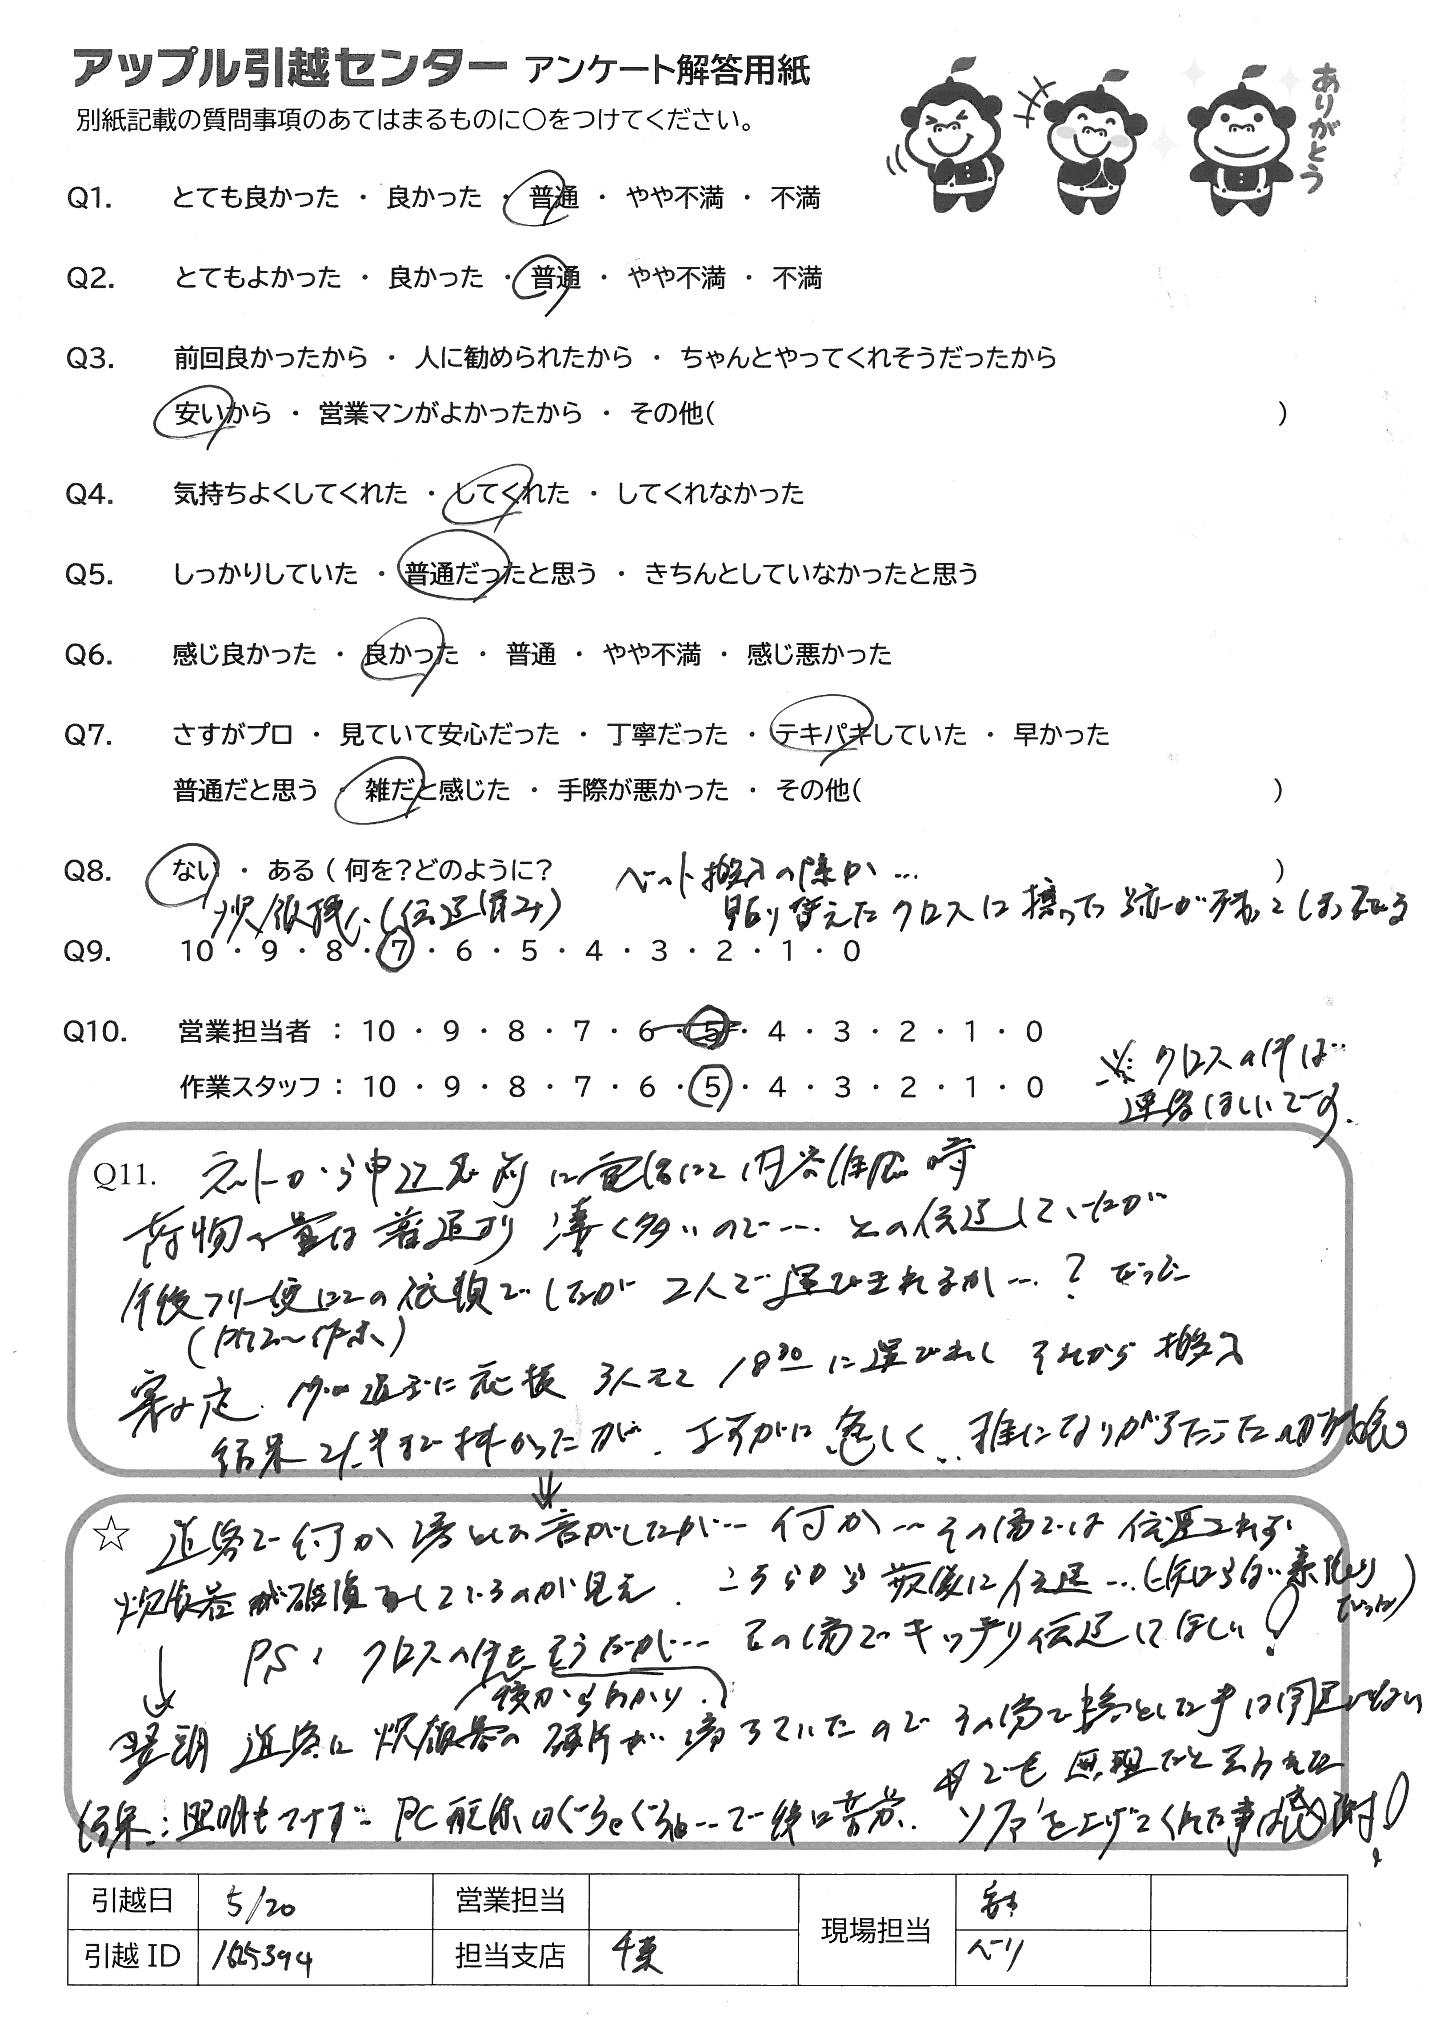 アップル引越センター アンケート解答用紙
別紙記載の質問事項のあてはまるものに〇をつけてください。
ありがとう
Q1. とても良かった ・ 良かった ・ 普通 ・ やや不満 ・ 不満
Q2. とてもよかった ・ 良かった ・ 普通 ・ やや不満 ・ 不満
Q3. 前回良かったから ・ 人に勧められたから ・ ちゃんとやってくれそうだったから
安いから ・ 営業マンがよかったから ・ その他( )
Q4. 気持ちよくしてくれた ・ してくれた ・ してくれなかった
Q5. しっかりしていた ・ 普通だったと思う ・ きちんとしていなかったと思う
Q6. 感じ良かった ・ 良かった ・ 普通 ・ やや不満 ・ 感じ悪かった
Q7. さすがプロ ・ 見ていて安心だった ・ 丁寧だった ・ テキパキしていた ・ 早かった
普通だと思う ・ 雑だと感じた ・ 手際が悪かった ・ その他( )
Q8. ない ・ ある ( 何を?どのように? ベット搬入の際か… )
(伝達済み) 貼り替えたクロスに擦った跡が残ってしまってる
Q9. 10 ・ 9 ・ 8 ・ 7 ・ 6 ・ 5 ・ 4 ・ 3 ・ 2 ・ 1 ・ 0
Q10. 営業担当者 : 10 ・ 9 ・ 8 ・ 7 ・ 6 ・ 5 ・ 4 ・ 3 ・ 2 ・ 1 ・ 0
作業スタッフ : 10 ・ 9 ・ 8 ・ 7 ・ 6 ・ 5 ・ 4 ・ 3 ・ 2 ・ 1 ・ 0
※クロスの件は…
連絡ほしいです。
Q11. ネットから申込む前に電話にて内容確認時
荷物の量は普通より凄く多いので…との伝達していたが
午後フリー便にての依頼でしたが 2人で運びきれるか…?だった
案の定 応援 3人にて 18:30に運び それから搬入
結果 21時半まで掛かったが、さすがに 急しく、雑になりがちだった
☆ 道路で何か落としの音がしたが… 何か…その場では伝達されず
炊飯器が破損をしているのが見え、こちらから最後に伝達…
PS、クロスの件もそうだが… その場でキッチリ伝達してほしい!
後からわかり、
翌朝 道路に炊飯器の破片が落ちていたのでその場で落とした事は間違いない
結果:照明もつけず PC配線はぐちゃぐちゃ…で後に苦労、
でも 無理だと言われた
ソファを上げてくれた事は感謝!
引越日 5/20 営業担当 現場担当
引越 ID 1625394 担当支店 千葉 ペリ